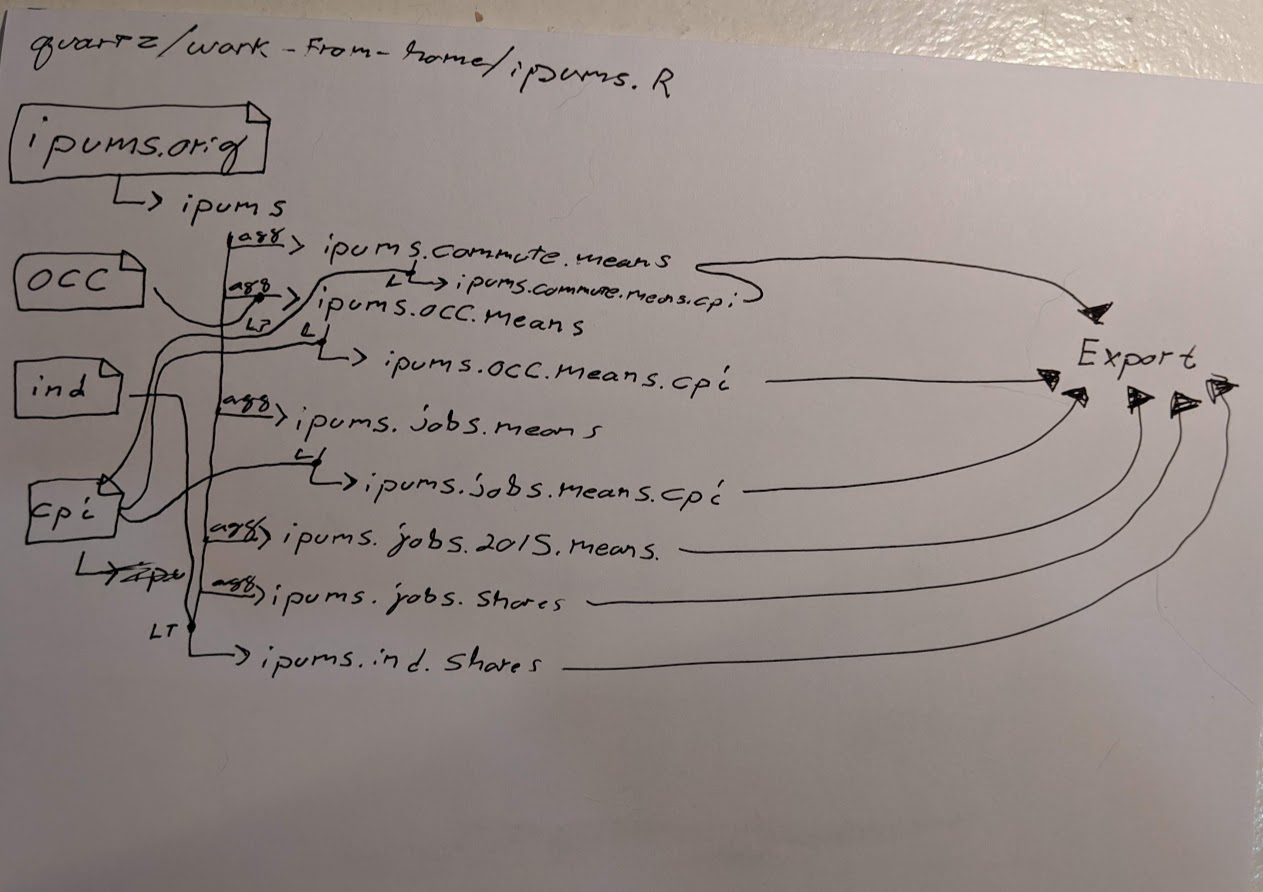 quartz/work-from-home/ipums.R
ipums.orig
ipums
agg ipums.commute.means
OCC
L ipums.commute.means.cpi
agg ipums.OCC.means
LT
L
ipums.OCC.means.cpi
ind
agg ipums.jobs.means
L
ipums.jobs.means.cpi
cpi
agg ipums.jobs.2015.means.
agg ipums.jobs.shares
LT
ipums.ind.shares
Export